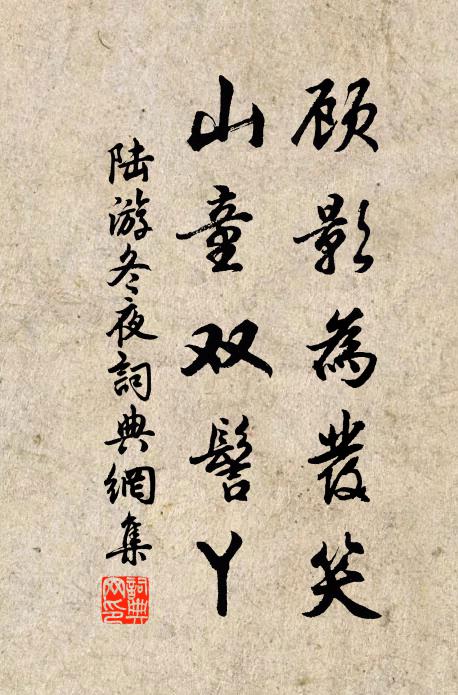 顾影為發笑
山童双髻丫
陆游冬夜詞典網集
詞典网印